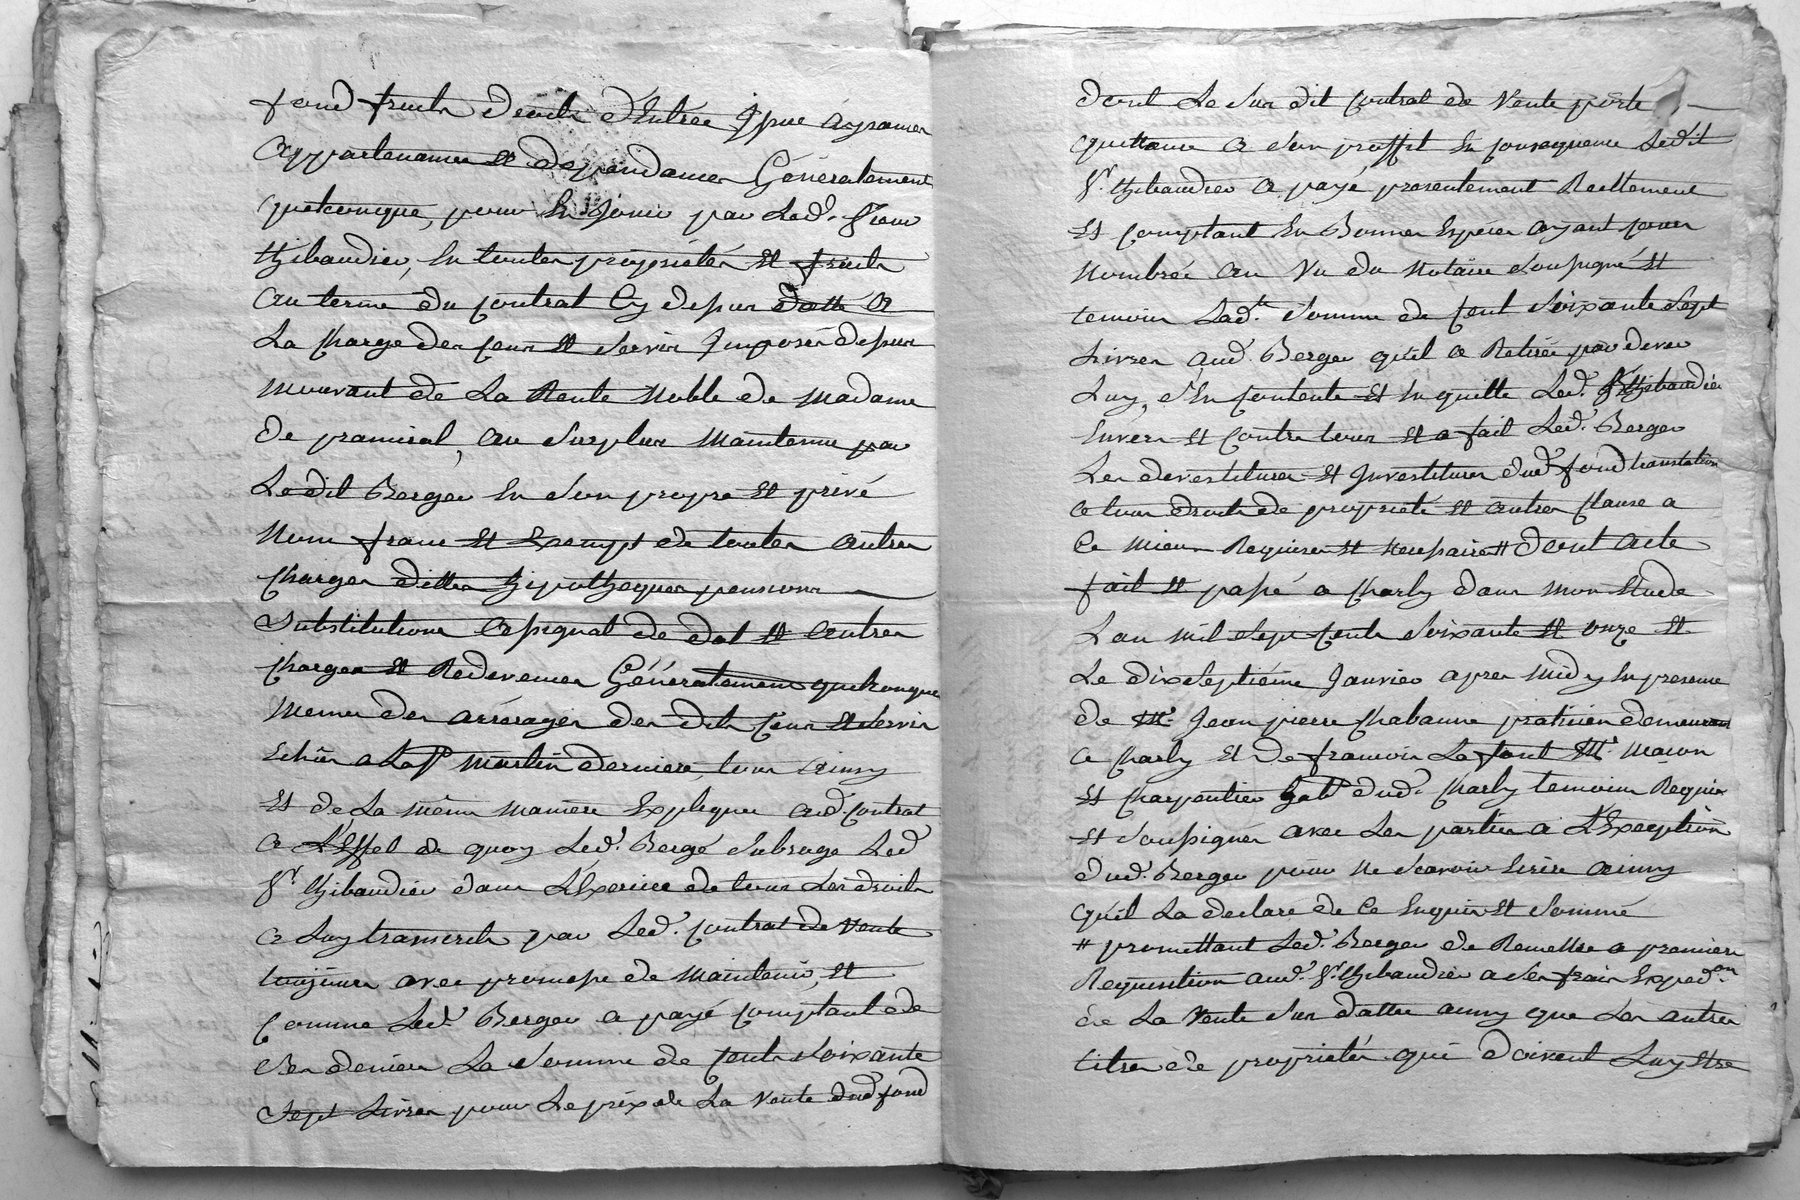 fond fruits droits d'Entrée Jssue aysances
Appartenances et dependances Généralement
quelconque, pour En Jouir par Led. Sieur
thibaudier, En toutes proprietés et fruits
au terme du contrat Cy dessus datté a
La Charge des cens et servis Jmposés dessus
mouvant de La Rente Noble de Madame
De pramiral, au surplus maintenu par
Le dit Berger En son propre et privé
Nom franc et Exempt de toutes autres
charges dittes hipotheques pensions
substitutions assignat de dot et autres
charges et Redevences Généralement quelconques
memes des arrerages des dits cens et servis
Echûs a La St martin derniere, tous ainsy
Et de La même maniere Expliquée aud. contrat
a L'Effet de quoy Led. Bergé subroge Led
Sr thibaudier dans L'Exercice de tous Les droits
a Luy transmis par Led. contrat de vente
toujours avec promesse de maintenir, et
Comme Led. Berger a payé comptant de
ses deniers La somme de cents soixante
sept Livres pour Le prix de La Vente dud fond
dont Le sus dit contrat de Vente porte
quittance a son proffit En consequence Ledit
Sr. thibaudier a payé presentement Reellement
Et comptant En Bonnes Especes ayant cours
Nombrée au Vu du Notaire soussigné et
temoins Lad. somme de cent soixante sept
Livres aud. Berger qu'il a Retirée par devers
Luy, s'En contente et En quitte Led. thibaudier
Envers et contre tous et a fait Led. Berger
Les devestitures et Jnvestitures dud. fond translation
a tous droits de proprieté et autres Clause a
Ce mieux Requises et necessaires # dont acte
fait et passé a Charly dans mon Etude
Lan mil sept cents soixante et onze et
Le dix septième Janvier apres midy En presence
de Mr. Jean pierre Chabanne praticien demeurant
a Charly et de francois La font Mr. Macon
Et Charpentier habt. dud. Charly temoins Requis
et soussignés avec Les parties a L'Exception
dud. Berger pour ne scavoir Ecrire ainsy
qu'il La declaré de Ce Enquis et sommé
# promettant Led. Berger de Remettre a premiere
Requisition aud. Sr. thibaudier a ses frais Exped.on
de La Vente sus dattée ainsy que Les autres
titres de proprietés qui doivent Luy Etre